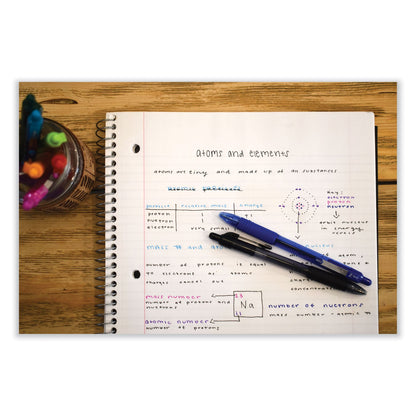 atoms and elements
atoms are tiny and made up of in substances
particle relative mass charge
proton 1
neutron 1
electron very small
Key:
electron
proton
neutron
orbit nucleus
in energy
mass # and
nucleus
number of protons is equal
to electrons so atoms
charges cancel out
mass number
number of protons and
neutrons
23
Na
11
number of neutrons
mass number - atomic #
atomic number
number of protons